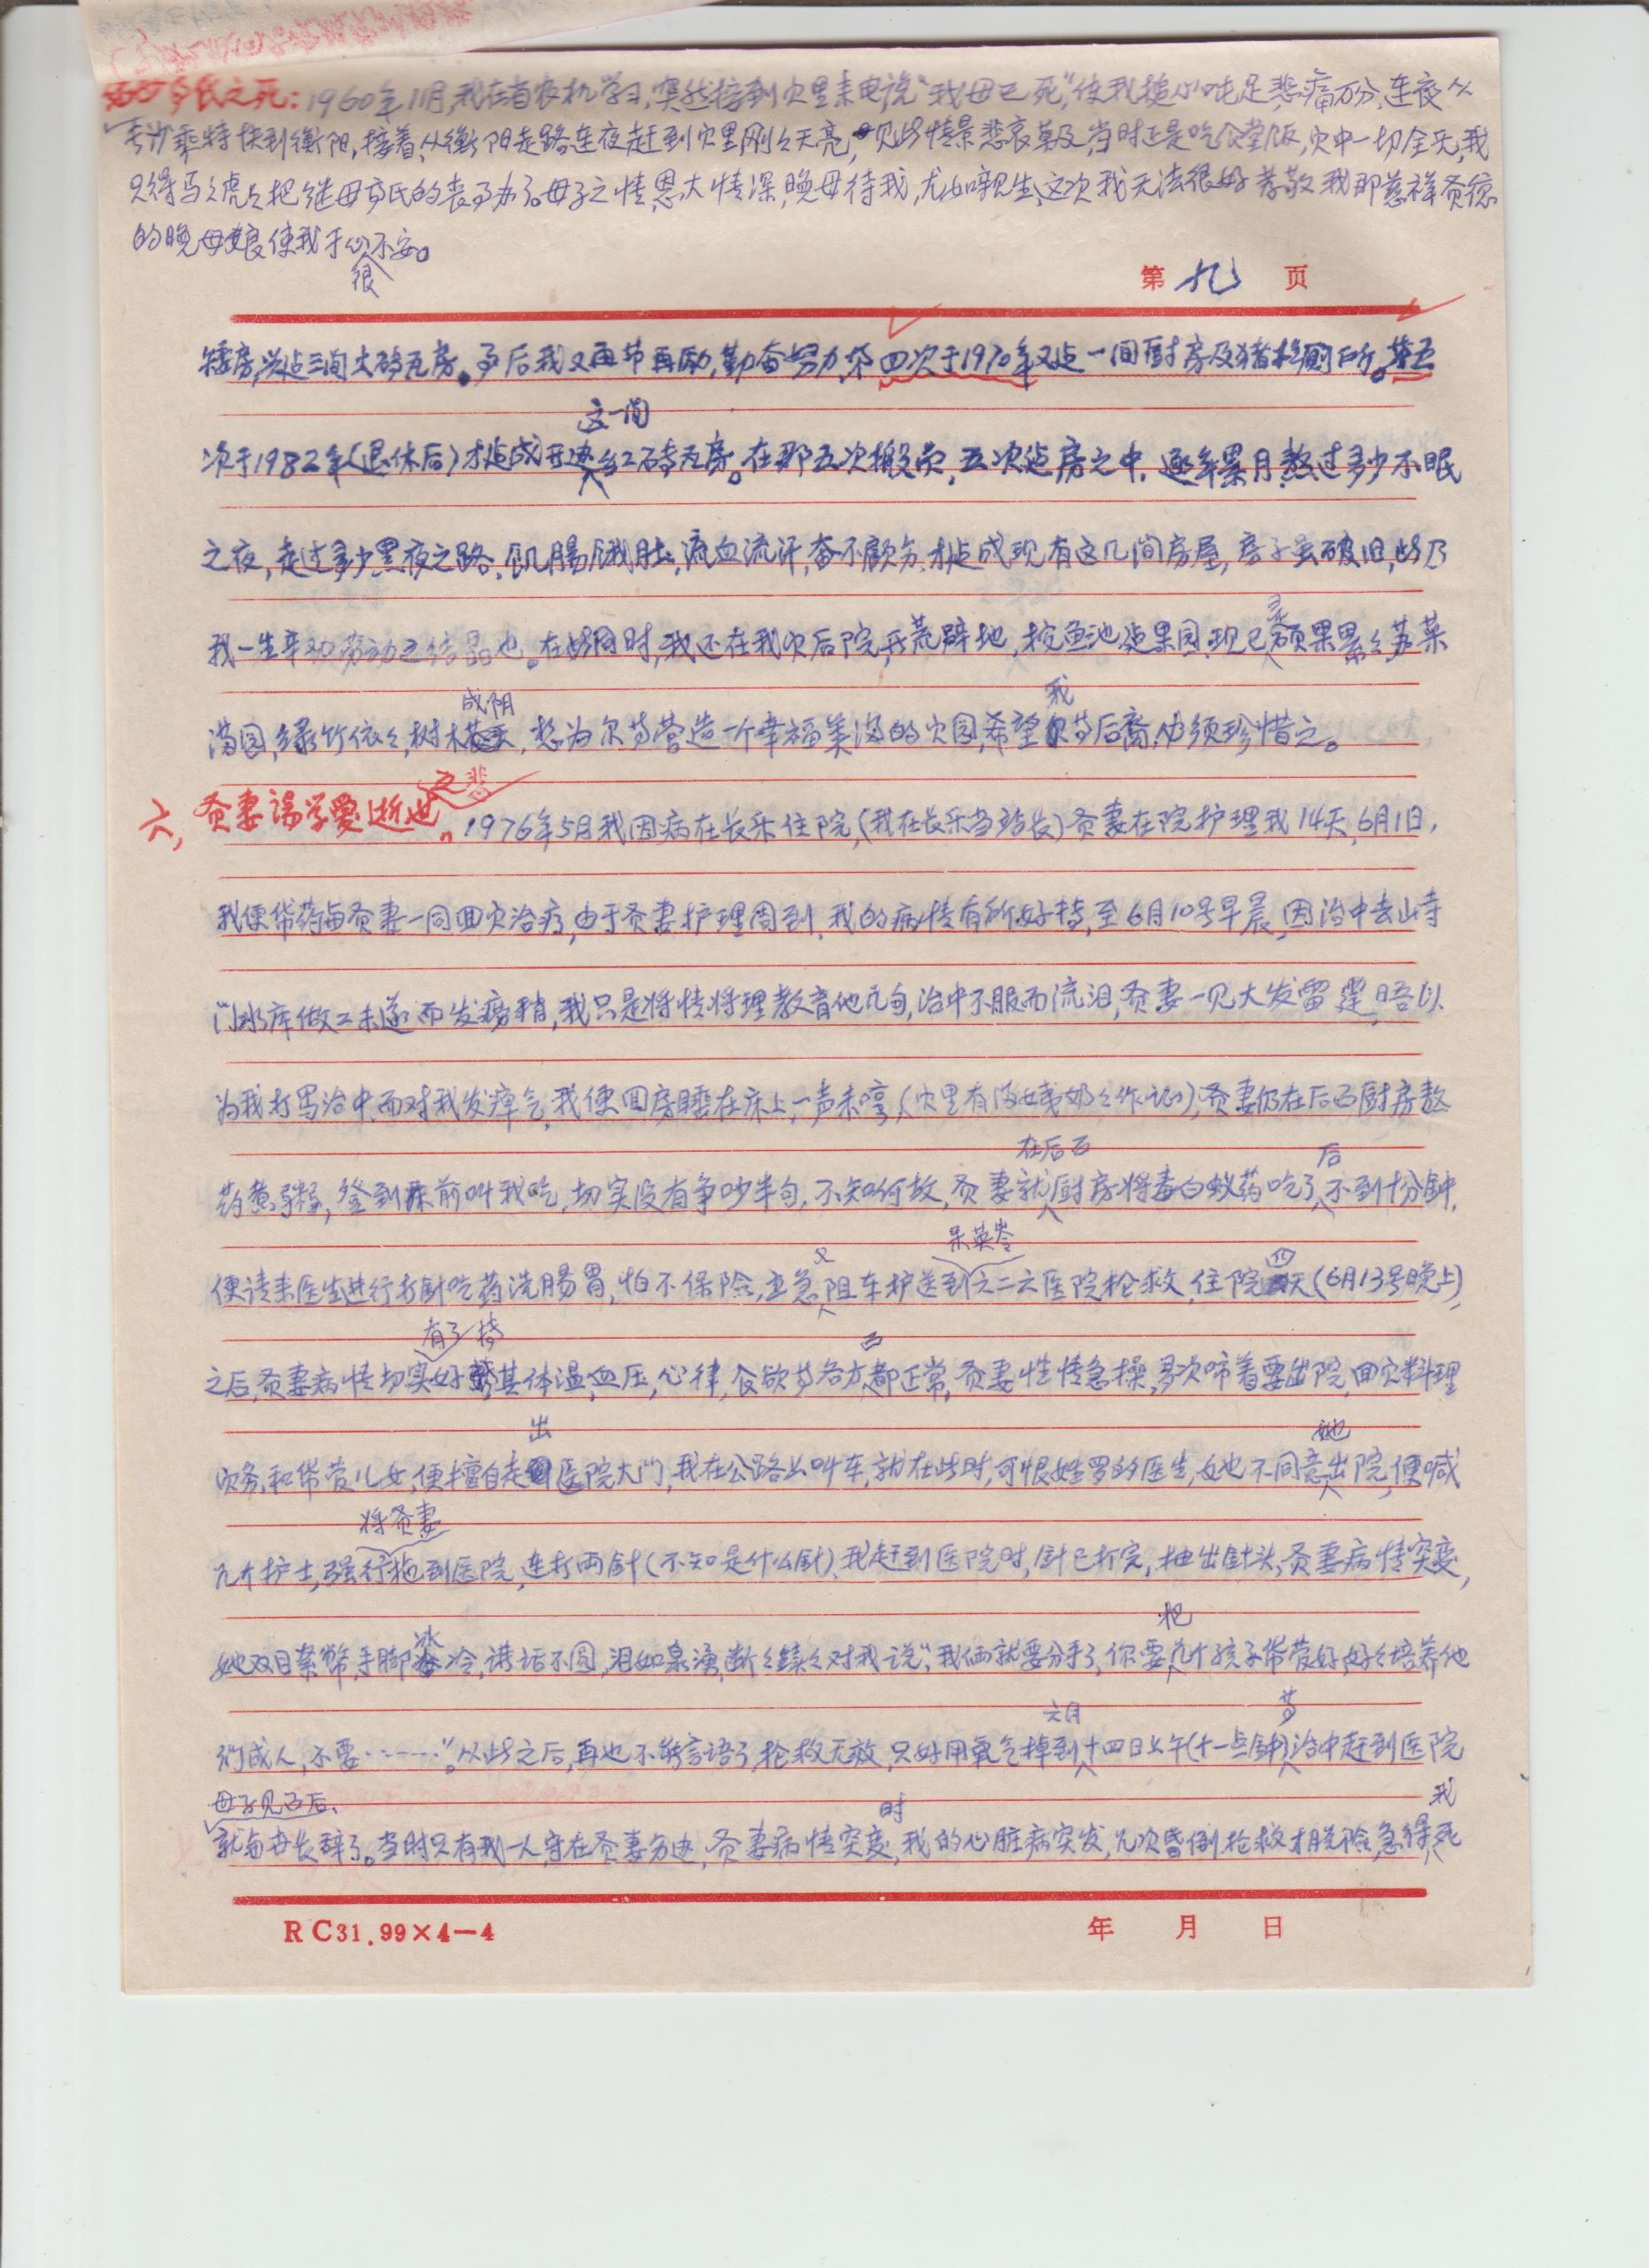 氏之死：1960年11月,我在省农机学习,突然接到家里来电说“我母已死”,使我捶心吨足悲痛万分,连夜从
长沙乘特快到衡阳,接着,从衡阳走路连夜赶到家里刚々天亮,一见此情景悲哀莫及,当时正是吃食堂饭,家中一切全无,我
只得马々虎々把继母 氏的丧事办了。母子之情,恩大情深,晚母待我,尤如亲生,这次我无法很好孝敬我那慈祥贤德
的晚母娘使我于心很不安。
第 九 页
矮房,兴造三间土砖瓦房。事后我又再节再励,勤奋努力,第四次于1970年又造一间厨房及猪栏厕所。第五
次于1982年(退休后)才造成西边这一间红砖瓦房。在那五次搬家,五次造房之中,逐年累月,熬过多少不眠
之夜,走过多少黑夜之路,饥肠饿肚,流血流汗,奋不顾身,才造成现有这几间房屋,房子虽破旧,此乃
我一生辛劳动之结晶也。在此同时,我还在我家后院,开荒辟地,挖鱼池造果园,现已硕果累々,苏菜
满园,绿竹依々,树木成阴,想为尔等营造一个幸福美满的家园,希望我等后裔,务须珍惜之。
六,贤妻汤学爱逝世之悲。1976年5月我因病在长乐住院,(我在长乐当站长)贤妻在院护理我14天,6月1日,
我便带药与贤妻一同回家治疗,由于贤妻护理周到,我的病情有所好转,至6月10号早晨,因治中去山寺
门水库做工未遂而发痨,我只是将情将理教育他几句,治中不服而流泪,贤妻一见大发雷霆,误以
为我打骂治中,而对我发瘴气,我便回房睡在床上,一声未哼,(家里有 奶々作记),贤妻仍在后面厨房熬
药煮粥,登到床前叫我吃,切实没有争吵半句,不知何故,贤妻就在后面厨房将毒白蚁药吃了后,不到十分钟,
便请来医生进行打针吃药洗肠胃,怕不保险,立急又阻车护送到呆英岺六二六医院枪救,住院四天(6月13号晚上),
之后,贤妻病情切实好有了转其体温,血压,心律,食欲等各方面都正常,贤妻性情急操,多次啼着要出院,回家料理
家务,和带菅儿女,便擅自走出医院大门,我在公路上叫车,就在此时,可恨姓罗的医生,她不同意她出院,便喊
几个护士,强行将贤妻拖到医院,连打两针(不知是什么针),我赶到医院时,针已打完,抽出针头,贤妻病情突变,
她双目紧幣,手脚冰冷,讲话不圆,泪如泉湧,断々续々对我说“我俩就要分手了,你要把几个孩子带菅好,好々培养他
们成人,不要……”。从此之后,再也不能言语了,枪救无效,只好用氧气掉到六月十四日上午(十一点钟)等治中赶到医院
母子见面后、
就与世长辞了。当时只有我一人,守在贤妻身边,贤妻病情突变时,我的心脏病突发,几次昏倒抢救才脱险,急得我死
RC31.99×4—4
年 月 日